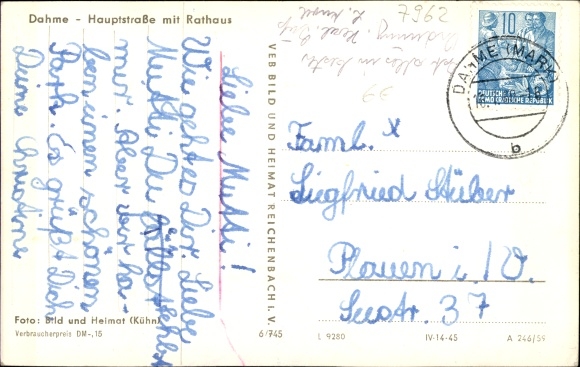 Dahme - Hauptstraße mit Rathaus
Liebe Mutti!
Wie geht es Dir. Liebe
Mutti Du fehlst
mir. Aber wir ha-
ben einen schönen
Es grüßt Dich
Deine Christine
Foto: Bild und Heimat (Kühn)
Verbraucherpreis DM -,15
VEB BILD UND HEIMAT REICHENBACH i. V.
6/745
7962
10
DEUTSCHE
DEMOKRATISCHE REPUBLIK
DAHME (MARK)
b
Faml.
Siegfried Stüber
Plauen i./V.
Seestr. 37
L 9280
IV-14-45
A 246/59